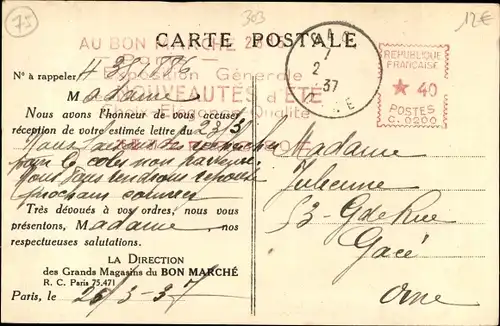 73
303
12€
CARTE POSTALE
AU BON MARCHÉ
Exposition Générale
NOUVEAUTÉS d'ÉTÉ
Qualité
2
37
RÉPUBLIQUE
FRANÇAISE
★ 40
POSTES
C.0200
N° à rappeler
Madame
Nous avons l'honneur de vous accuser
réception de votre estimée lettre du 23/3
Nous
pour
Nous vous rendrons réponse
prochain courrier
Très dévoués à vos ordres, nous vous
présentons, Madame, nos
respectueuses salutations.
LA DIRECTION
des Grands Magasins du BON MARCHÉ
R. C. Paris 75.471
Paris, le 26/3-37
Madame
Julienne
53 Gde Rue
Gacé
Orne